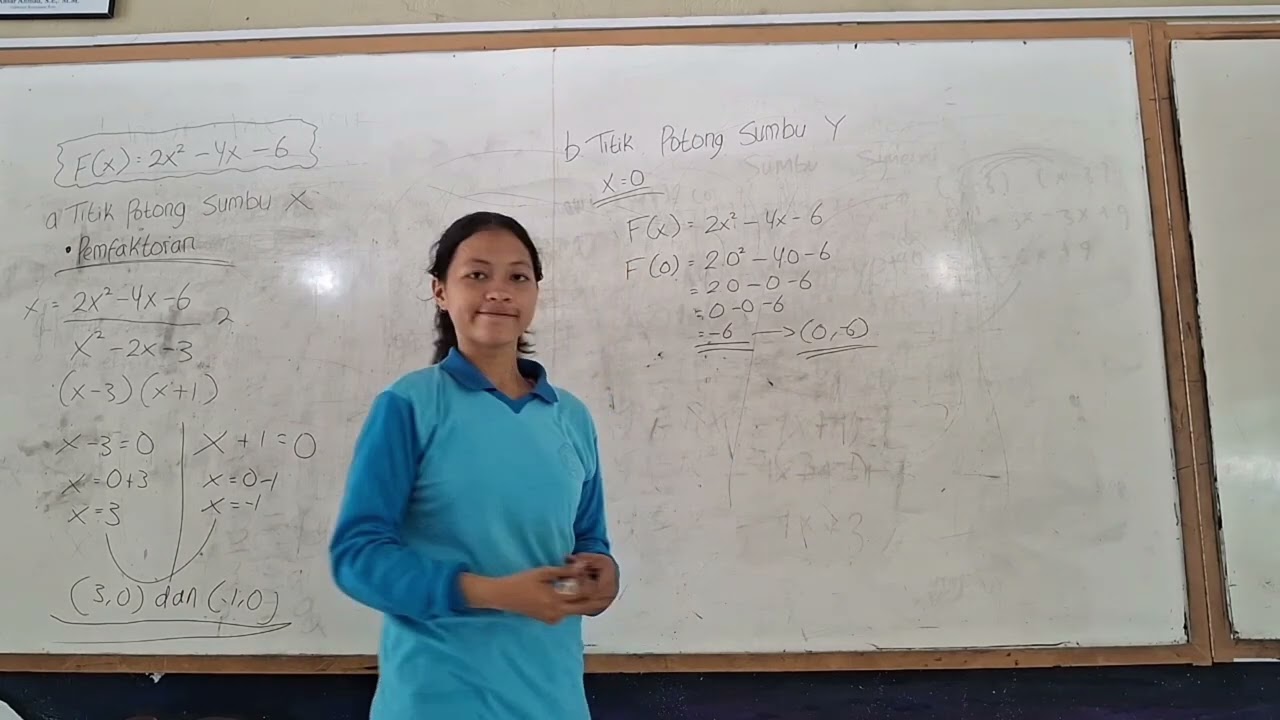 F(x) = 2x² - 4x - 6
a Titik Potong Sumbu X
• Pemfaktoran
x = 2x² - 4x - 6
2
x² - 2x - 3
(x-3) (x+1)
x - 3 = 0
x = 0+3
x = 3
x + 1 = 0
x = 0-1
x = -1
(3,0) dan (-1,0)
b. Titik Potong Sumbu Y
x = 0
F(x) = 2x² - 4x - 6
F(0) = 20² - 40 - 6
= 20 - 0 - 6
= 0 - 0 - 6
= -6 → (0,-6)
Sumbu Simetri